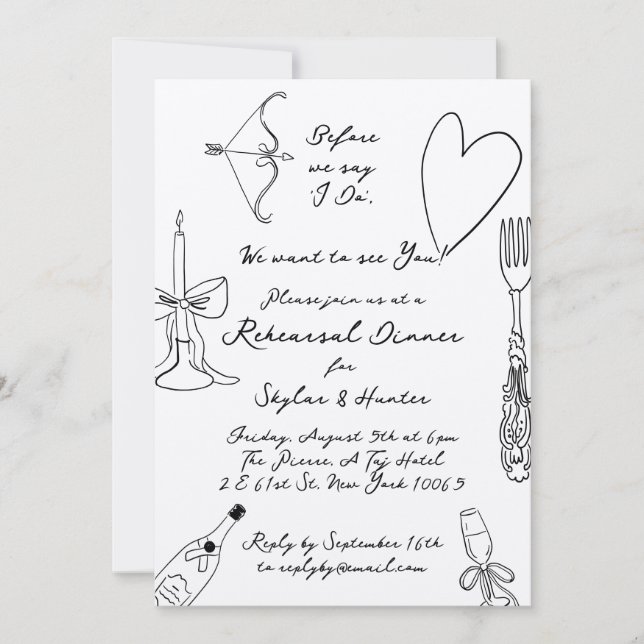 Before
we say
'I Do',
We want to see You!
Please join us at a
Rehearsal Dinner
for
Skylar & Hunter
Friday, August 5th at 6pm
The Pierre, A Taj Hotel
2 E 61st St, New York 10065
Reply by September 16th
to replyby@email.com